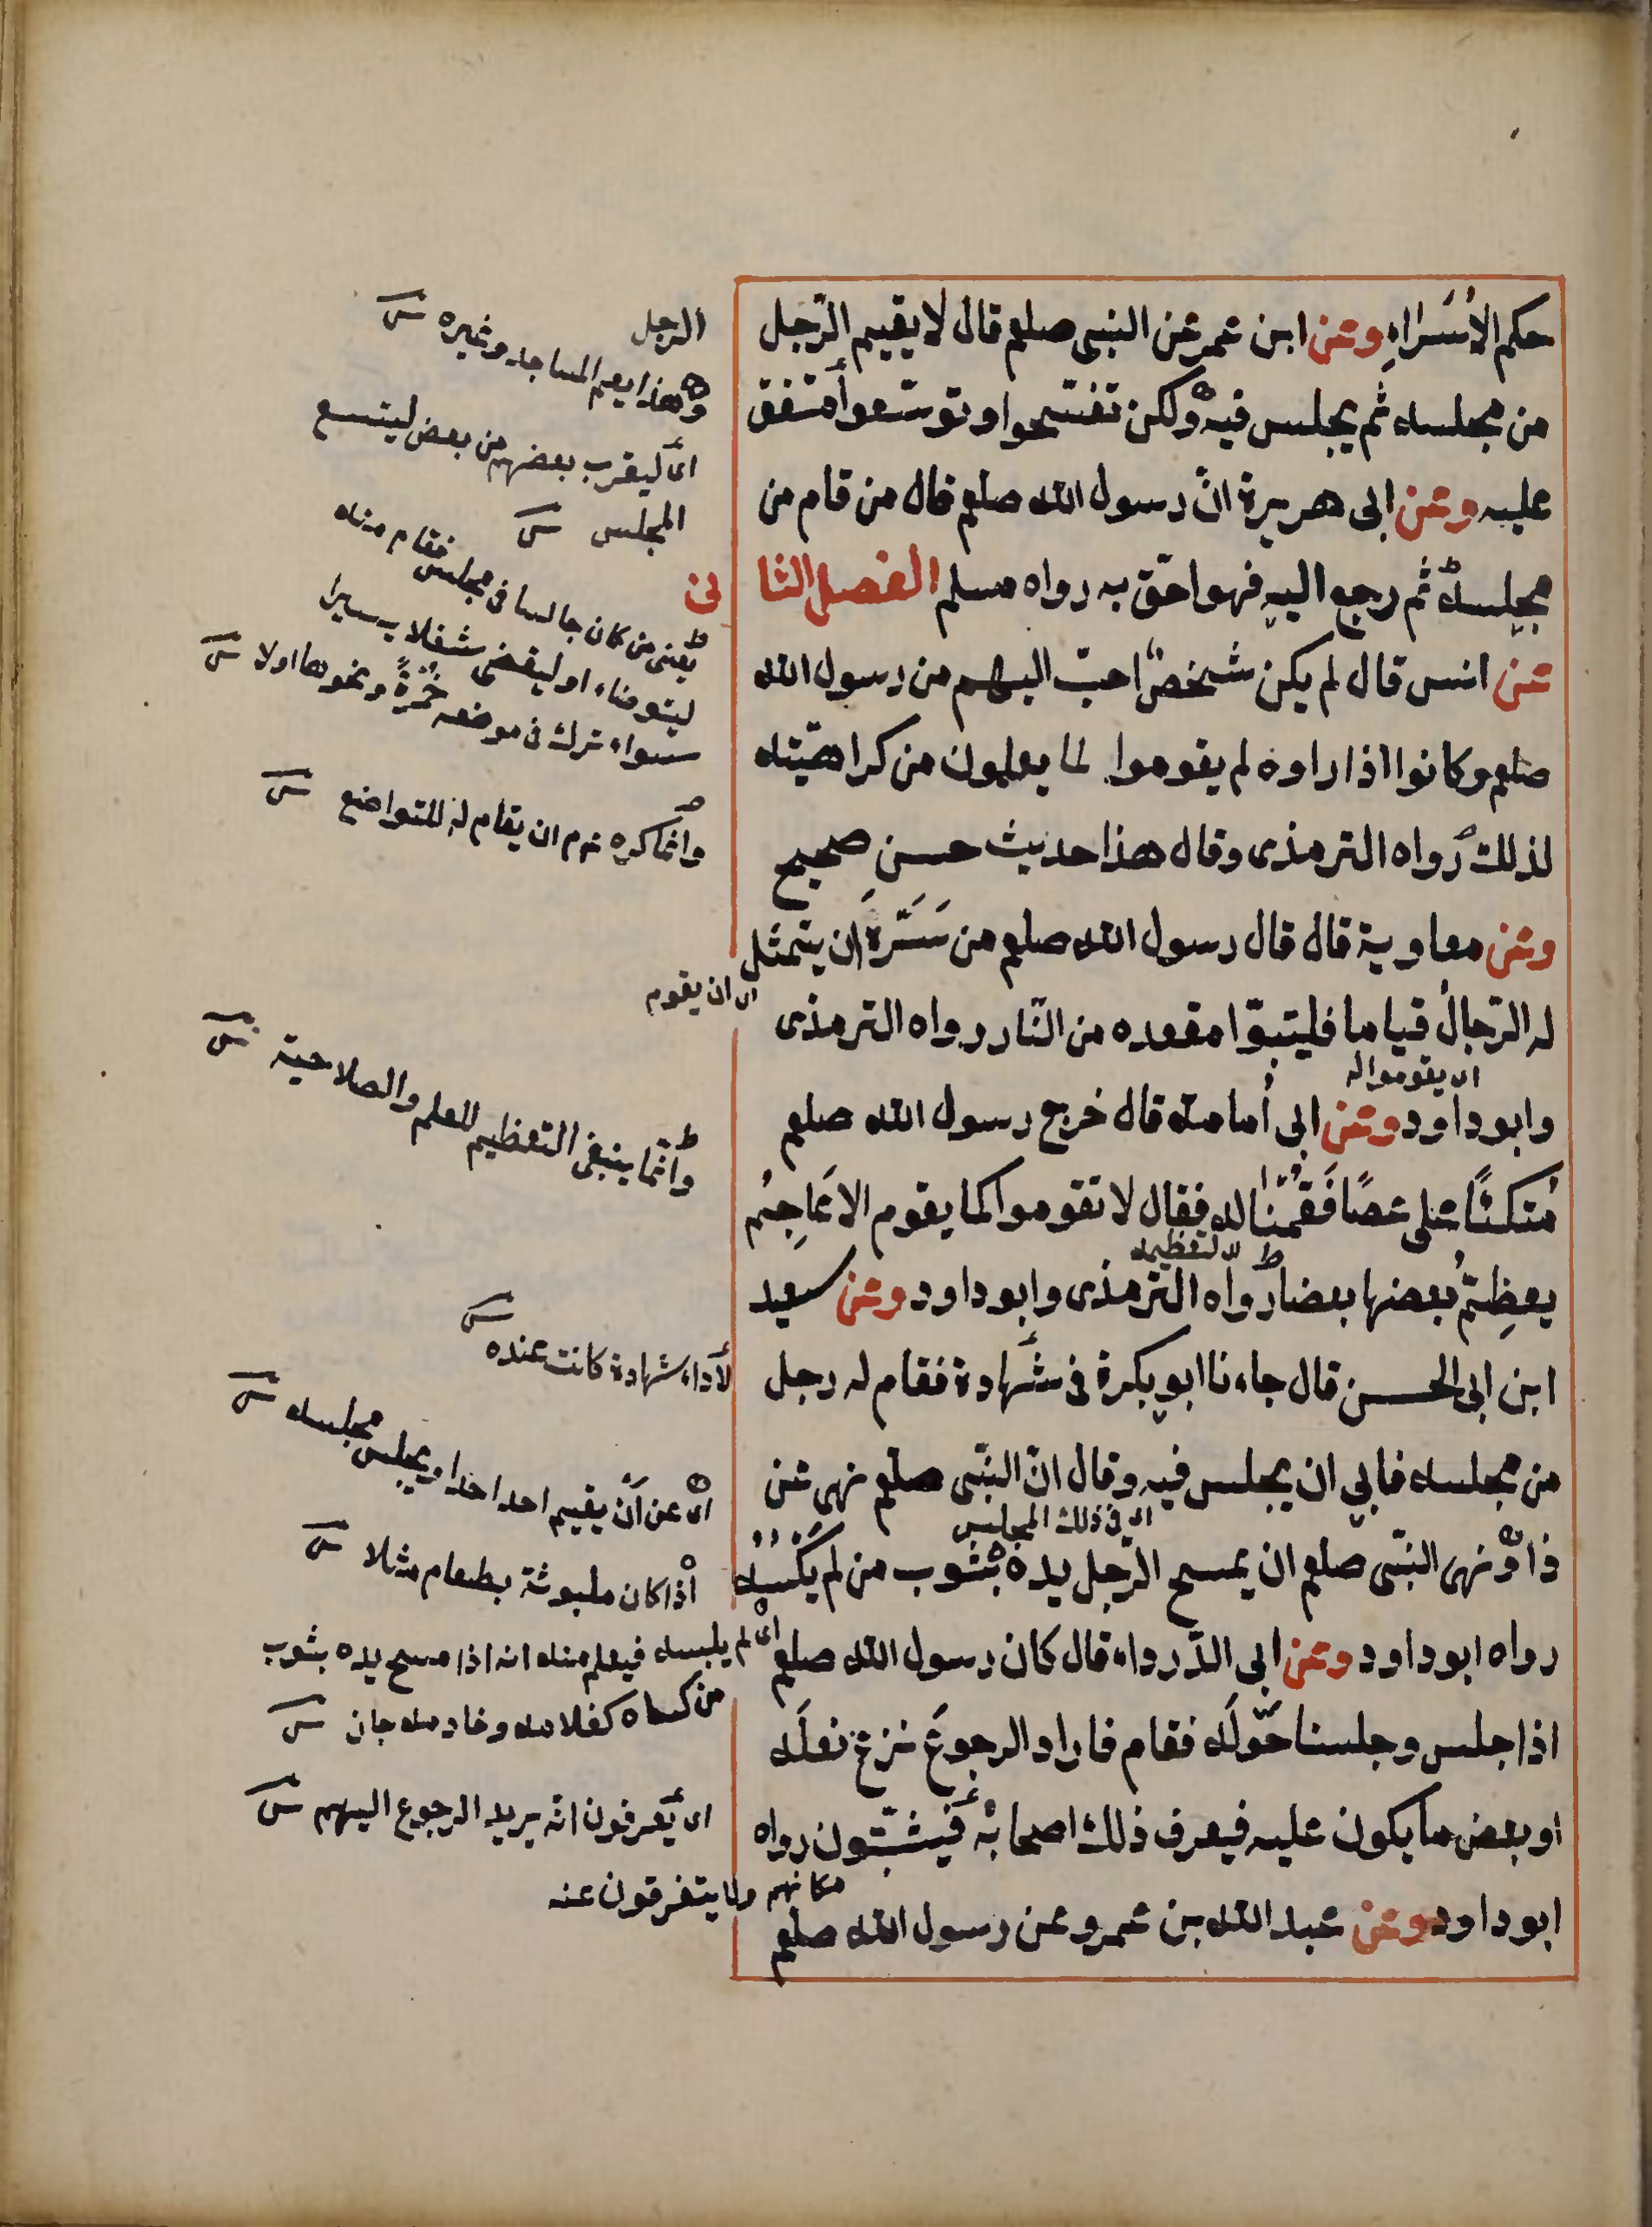 حكم الاُسَراءِ وعن ابن عمر عن النبى صلعم قال لا يقيم الرّجل
الرجل
من مجلسه ثم يجلس فيه ولكن تفسّحوا وتوسّعوا متفق
عليه وعن ابى هريرة انّ رسول الله صلعم قال من قام من
مجلسه ثم رجع اليه فهو احقّ به رواه مسلم الفصل الثا
نى
عن انس قال لم يكن شخصٌ احبّ اليهم من رسول الله
صلعم وكانوا اذا راوه لم يقوموا لما يعلمون من كراهيّته
لذلك رواه الترمذى وقال هذا حديث حسن صحيح
وعن معاوية قال قال رسول الله صلعم من سَرَّهَ ان يتمثل
اى ان يقوم
له الرّجالُ قياما فليتبوّا مقعده من النّار رواه الترمذى
اى يقوموا له
وابو داود وعن ابى اُمامة قال خرج رسول الله صلعم
مُتكئًا على عصًا فَقُمْنَا له فقال لا تقوموا كما يقوم الاعَاجِمُ
ط لا لتعظيمه
يعظِّمُ بعضها بعضا رواه الترمذى وابو داود وعن سعيد
ابن ابى الحسن قال جاءنا ابو بكرة فى شَهادة فقام له رجل
من مجلسه فابى ان يجلس فيه وقال انّ النبّى صلعم نهى عن
اى فى ذلك المجلس
ذا ونهى النبّى صلعم ان يمسح الرّجل يده بثوب من لم يَكْسُهُ
رواه ابو داود وعن ابى الدّرداء قال كان رسول الله صلعم
اذا جلس وجلسنا حَوْلَه فقام فاراد الرجوعَ نزع نعلَه
او بعض ما يكون عليه فيعرف ذلك اصحابه فيثبّتون رواه
مكانهم ولا يتفرقون عنه
ابو داود وعن عبد الله بن عمرو عن رسول الله صلعم
وهذا يعم المساجد وغيره
اى ليقرب بعضهم من بعض ليتسع
المجلس
يعنى من كان جالسا فى مجلس فقام منه
ليتوضاء او ليقضى شغلا يسيرا
سواء ترك فى موضعه خُمْرَةً ونحوها اولا
وانّما كره عم ان يقام له للتواضع
وانّما ينبغى التعظيم للعلم والصلاحية
لأداء شهادة كانت عنده
اى عن اَن يقيم احد احدا ويجلس مجلسه
اذا كان ملبوثة بطعام مثلا
اى لم يلبسه فيعلم منه انه اذا مسح يده بثوب
من كساه كغلامه وخادمه جاز
اى يعرفون انّه يريد الرجوع اليهم